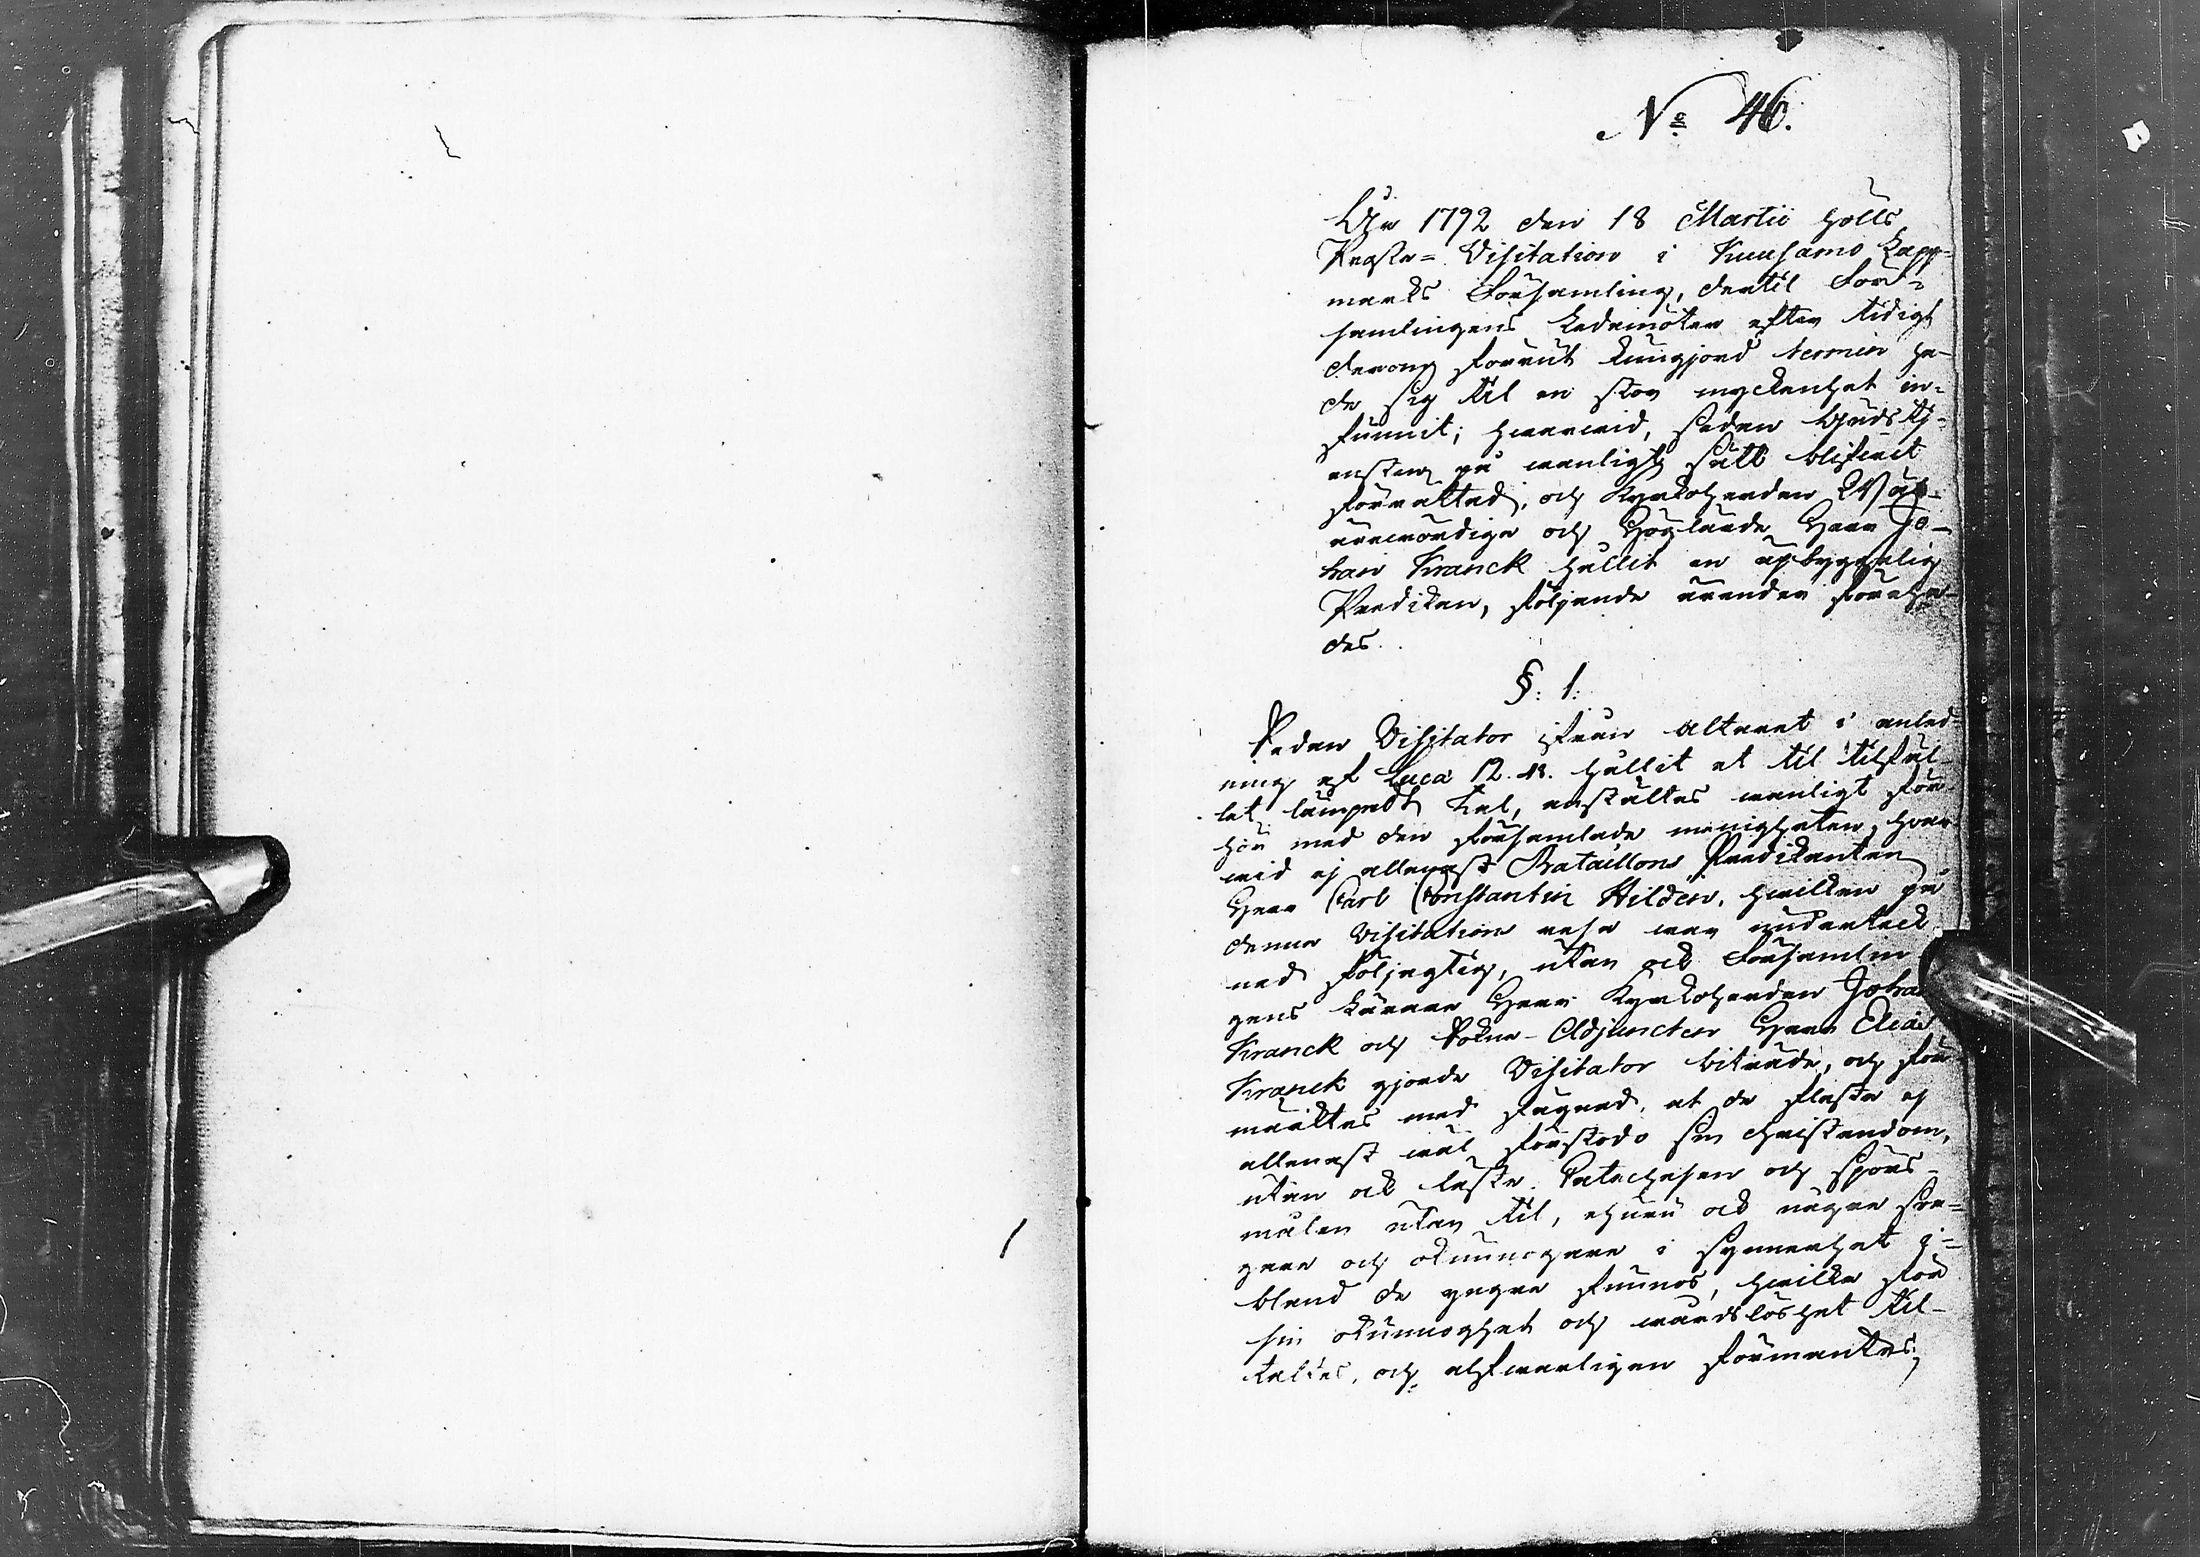 No 46.
År 1792 den 18 Martii hölls
Prosta- Visitation i Kuusamo Lapp-
marks Församling, dertil För-
samlingens Ledamöter efter tidigt
derom förrut kungjord termin ha-
de sig til en stor myckenhet in-
funnit; hvarwid, sedan Gudstj-
ensten på wanligt sätt blifwit
förrättad, och Kyrkoherden Wäl-
ärewördige och Höglärde Herr Jo-
han Kranck hållit en upbyggelig
Predikan, följande ärender föreha-
des.
§. 1.
Sedan Visitator ifrån Altaret i anled-
ning af Luca 12. hållit et til tilfäl-
let lämpadt Tal, anstältes wanligt för-
hör med den församlade menigheten, hvar-
wid ej allenast Bataillons Predikanten
Herr Carl Constantin Hildén, hwilken på
denna Visitations resa war underteck-
nad följagtig, utan ock Församlin
gens Lärare Herr Kyrkoherden Joha
Kranck och Sokne-Adjuncten Herr Elias
Kranck gjorde Visitator biträde, och för-
märktes med fägnad, at de fleste ej
allenast wäl förstodo sin christendom,
utan ock läste Catechesen och spörs-
målen utan til, ehuru ock någre swa-
gare och okunnogare i synnerhet i-
bland de yngre funnos, hwilka för
sin okunnoghet och wårdslöshet til-
taltes, och alfwarligen förmantes,